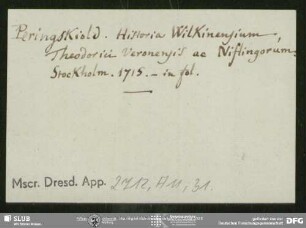 Peringskiold. Historia Wilkinensium,
Theodorici Veronensis ac Niflingorum.
Stockholm. 1715. – in fol.
Mscr. Dresd. App. 2712, A11, 31.
SLUB
DFG